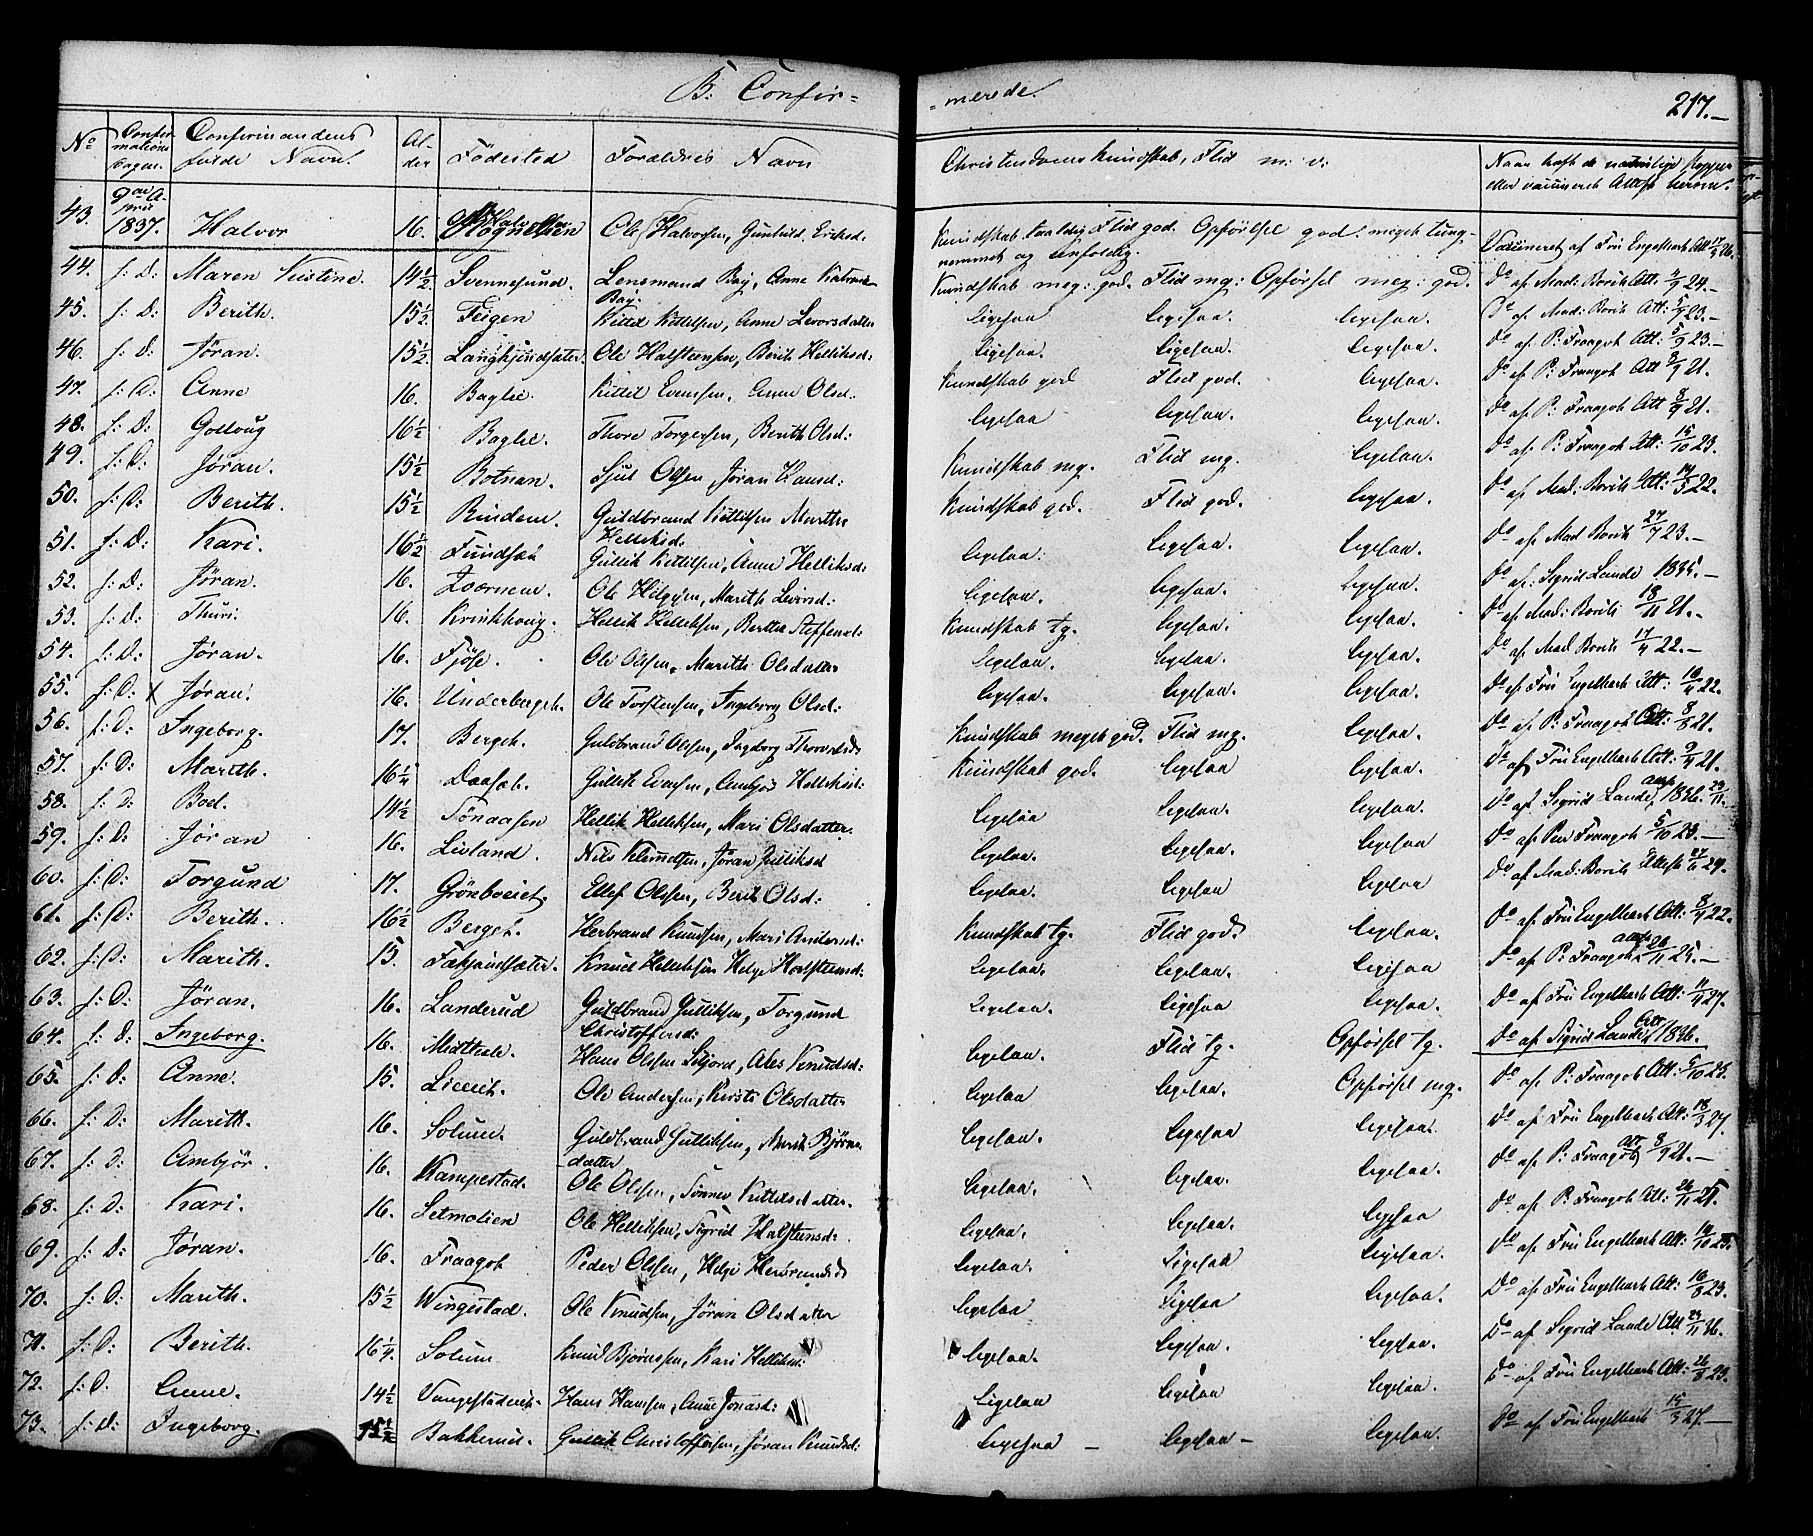 B: Confir= =merede. 217.—
No Confirmations Dagen. Confirmandens fulde Navn. Alder Födested Forældres Navn Christendoms Kundskab, Flid m: v: Naar haft de naturlige Kopper eller vaccineret Attest herom.
43. 9de April 1837. Halvor 16. Ole Halvorsen, Gunhild Eriksd: Kundskab taalelig Flid god. Opförsel god. meget tung=
nemmet og eenfoldig. Vaccineret af Fru Engelbach Att
44. f: D: Maren Kistine. 14½ Svennesund. Lensmand Bay, Anne Katrine Bay. Kundskab meg: god. Flid mg: Opförsel meg: god. do af Mad: Borik Att: 24.—
45. f: D: Berith. 15½ Feigen Kittil Kittilsen, Anne Levorsdatter Ligesaa Ligesaa. Ligesaa. do af Mad: Borik Att: 5/9 23.—
46. f: D: Jöran. 15½ Langhjendsæter. Ole Halsteensen, Berit Helliksd: Ligesaa. Ligesaa. Ligesaa. do af P: Fraagot Att: 5/9 23.—
47. f: D: Anne 16. Baglie. Kittil Evensen, Anne Olsd: Kundskab god Flid god. Ligesaa. do af P: Fraagot Att 8/9 21.
48. f: D: Golloug 16½ Baglie. Thore Torgersen, Berith Olsd: Ligesaa Ligesaa. Ligesaa. do af P: Fraagot Att 8/9 21.
49. f: D: Jöran. 15½ Botnan. Sjul Olsen, Jöran Hansd: Kundskab mg. Flid mg. Ligesaa. do af P: Fraagot Att: 15/10 23.
50. f: D: Berith. 15½ Rindem. Guldbrand Kittilsen Marthe Helliksd: Kundskab god. Flid god. Ligesaa. do af Mad: Borik Att: 14/5 22.
51. f: D: Kari. 16½ Gullik Kittilsen, Anne Helliksd: Ligesaa: Ligesaa. Ligesaa. do af Mad Borik 27/7 23.—
52. f: D: Jöran. 16. Ole Helgesen, Marith Levirsd: Ligesaa. Ligesaa. Ligesaa. do af: Sigrid Lande 1835.—
53. f: D: Thuri. 16. Krinkhoug. Hellik Helliksen, Berthe Steffensd: Kundskab tg. Ligesaa. Ligesaa. do af Mad: Borik 18/11 21.—
54. f: D: Jöran. 16. Fjöse. Ole Olsen, Marith Olsdatter Ligesaa. Ligesaa. Ligesaa. do af Mad Borik 17/4 22.—
55. f: D: x Jöran. 16. Underberget. Ole Torstensen, Ingeborg Olsd: Ligesaa. Ligesaa. Ligesaa. do af Fru Engelbach Att: 16/4 22.
56. f: D: Ingeborg. 17. Berget. Guldbrand Olsen, Ingeborg Kundskab meget god. Flid mg. Ligesaa. do af P: Fraagot Att: 8/8 21.
57. f: D: Marith. 16¼ Daaset. Gullik Evensen, Ambjör Helliksd: Kundskab god. Ligesaa Ligesaa. do af Fru Engelbach Att: 9/4 21.
58. f: D: Boel. 14½ Tönaasen Hellik Helliksen, Mari Olsdatter. Ligesaa Ligesaa. Ligesaa. do af Sigrid Lande, Attest 1836. 23/11.
59. f: D: Jöran 16. Livland. Nils Klemedsen, Jöran Gulliksd Ligesaa. Ligesaa. Ligesaa do af Peer Fraagot 5/10 23.—
60. f: D: Torgund 17. Grönboeiet. Ellef Olsen, Berit Olsd: Ligesaa. Ligesaa Ligesaa do af Mad: Borik Attest 27/6 24.
61. f: D: Berith. 16½ Berget. Herbrand Knudsen, Mari Andersd: Kundskab tg. Flid god. Ligesaa. do af Fru Engelbach Att: 8/4 22.
62. f: D: Marith. 15. Knud Helliksen Helge Halsteensd: Ligesaa. Ligesaa. Ligesaa do af P: Fraagot Attest 26/11 25.—
63. f: D: Jöran. 16. Landerud Guldbrand Gulliksen, Torgund Christoffersd: Ligesaa. Ligesaa Ligesaa. do af Fru Engelbach Att: 11/4 27.
64. f: D: Ingeborg. 16. Hans Olsen, Ales Knudsd: Ligesaa. Flid tg. Opförsel tg. do af Sigrid Lande, Att 1836.
65. f: D: Anne. 15. Ole Andersen, Kirsti Olsdatter Ligesaa Ligesaa. Opförsel mg. do af P: Fraagot Att: 5/10 23.
66. f: D: Marith. 16. Solum. Guldbrand Gulliksen, Marit Björns=
datter Ligesaa. Ligesaa Ligesaa. do af Fru Engelbach Att: 18/3 27.
67. f: D: Ambjör. 16. Kampestad. Ole Olsen, Tönnev Kittilsdatter. Ligesaa. Ligesaa. Ligesaa. do af P: Fraagot, Att 8/9 21.—
68. f: D: Kari. 16. Setmolien Ole Helliksen, Sigrid Halsteensd: Ligesaa. Ligesaa. Ligesaa do af P: Fraagot Att: 26/11 25.
69. f: D: Jöran. 16. Fraagot Peder Olsen, Helge Ligesaa. Ligesaa Ligesaa. do af Fru Engelbach Att: 14/10 25.
70. f: D: Marith. 15½ Wingestad. Ole Knudsen, Jöran Olsdatter Ligesaa Ligesaa Ligesaa. do af Fru Engelbach Att: 16/8 23.
71. f: D: Berith. 16¼ Solum Knud Bjørnsen, Kari Helliksd: Ligesaa. Ligesaa. Ligesaa. do af Sigrid Lande Att 23/11 36.
72. f: D. Anne. 14½ Hans Hansen, Anne Jonasd: Ligesaa Ligesaa Ligesaa. do af Fru Engelbach Att: 26/8 23.
73. f: D: Ingeborg. 15½ Bakkerud. Gullik Christoffersen, Jöran Knudsd: Ligesaa — Ligesaa — Ligesaa. do af Fru Engelbach 15/3 27.—